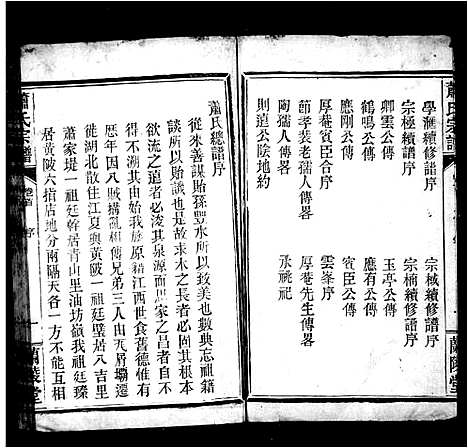 蕭氏宗譜
學滙續修譜序
宗極續譜序
卿雲公傳
鶴鳴公傳
應剛公傳
賓臣公傳
厚菴宦人傳畧
節孝裴老孺人傳畧
陶孺人傳畧
則道公陰地約
宗棫續修譜序
宗楠續修譜序
玉亭公傳
應有公傳
賓臣公傳
雲峯序
厚菴先生傳畧
承祧祀
蘭陵堂
蕭氏總譜序
從來善謀貽孫豐水所以致美也數典忘祖籍
談所以貽譏也是故木之長者必固其根本
流之遠者必浚其泉源而周家之昌者自不
得不溯其由始我族原籍江西世食舊德惟有
歷年因八賊搆亂相傳兄弟三人由瓦屑壩遷
徙湖北散住江夏與黃陂一祖廷璧居八吉里
蕭家堤一祖廷幹居青山里坊一祖廷臻
居黃陂六指店地分南隔天各一方不能互相
蕭氏宗譜
卷首
序
一
蘭陵堂